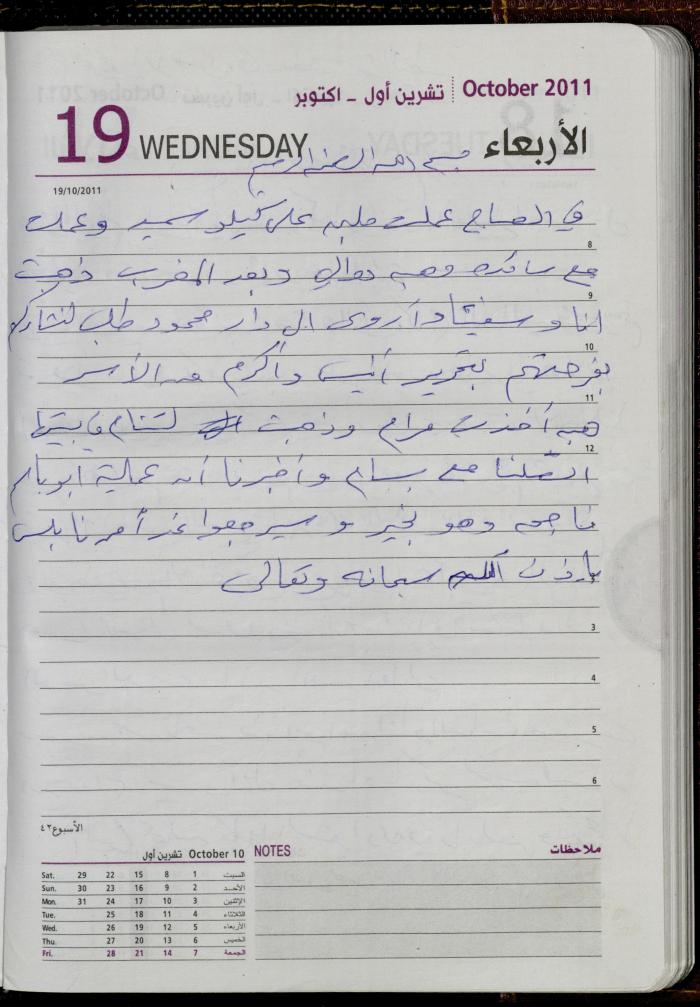 October 2011 تشرين أول - اكتوبر
19 WEDNESDAY الأربعاء
بسم الله الرحمن الرحيم
19/10/2011
في الصباح عملت حلبه على كيلو سميد وعملت
8
مع سائده وهبه دوالي وبعد المغرب ذهبت
9
انا و وأروى الى دار محمود طل لنشاركهم
10
بفرحتهم بتحرير أنس وأكرم من الأسر
11
هبه أخذت مرام وذهبت لتنام في بيتها
12
اتصلنا مع بسام وأخبرنا أن عملية ابو
ناجحه وهو بخير و سيرجعوا غداً من نابلس
بإذن الله سبحانه وتعالى
3
4
5
6
الأسبوع ٤٢
October 10 تشرين أول
Sat. 29 22 15 8 1 السبت
Sun. 30 23 16 9 2 الأحد
Mon. 31 24 17 10 3 الإثنين
Tue. 25 18 11 4 الثلاثاء
Wed. 26 19 12 5 الأربعاء
Thu. 27 20 13 6 الخميس
Fri. 28 21 14 7 الجمعة
NOTES ملاحظات